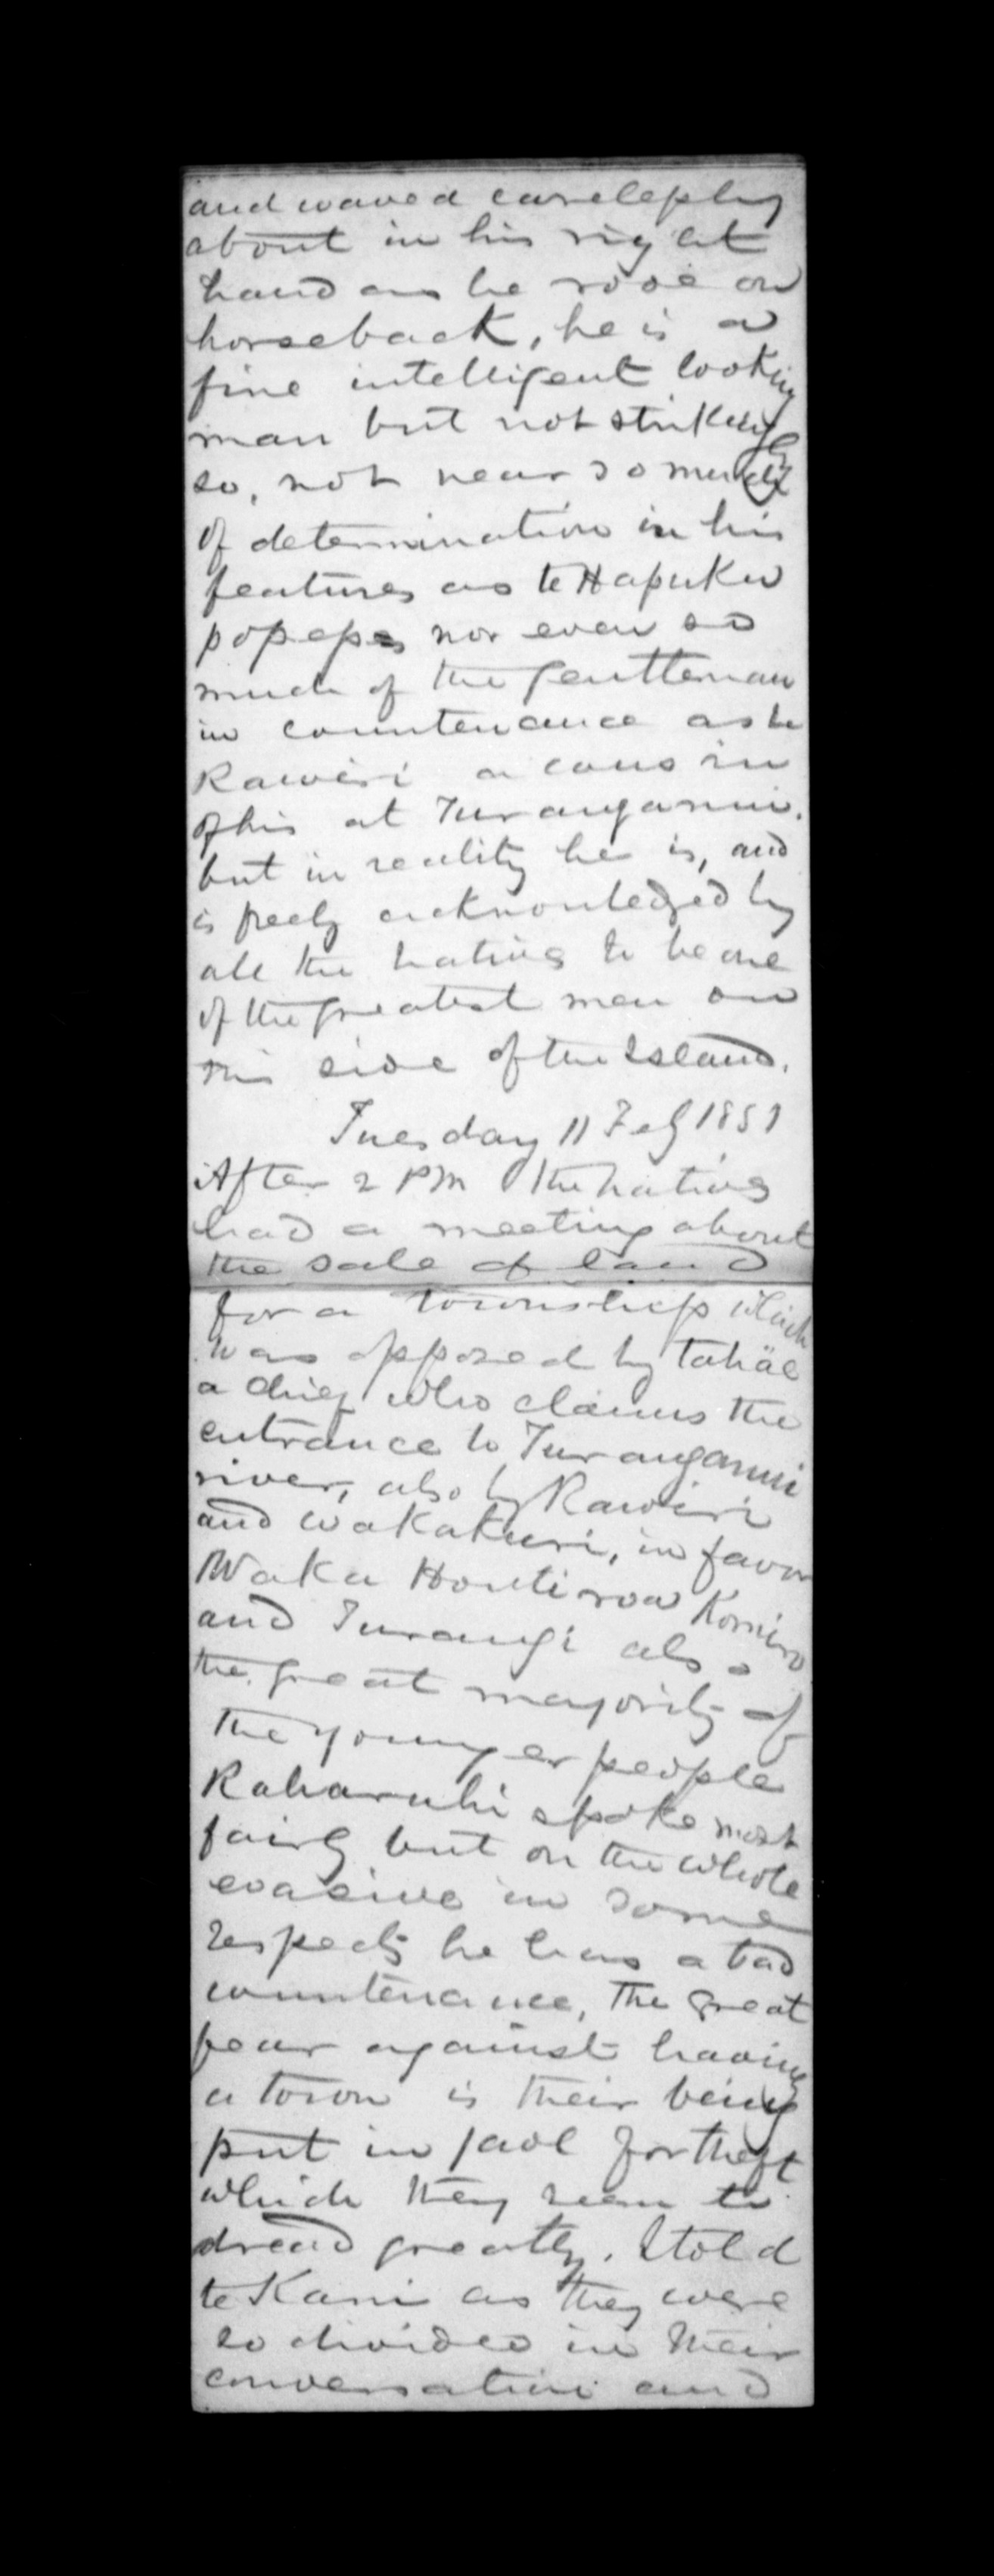 and waved carelessly
about in his right
hand as he rode on
horseback, he is a
fine intelligent looking
man but not strikingly
so, not near so much
of determination in his
features as te Hapuku
possesses nor even so
much of the gentleman
in countenance as te
Rawiri a cousin
of his at Turanganui.
but in reality he is, and
is freely acknowledged by
all the natives to be one
of the greatest men on
this side of the Island.
Tuesday 11 Feb 1851
After 2 PM the natives
had a meeting about
the sale of land
for a township which
was opposed by tahae
a chief who claims the
entrance to Turanganui
river, also by Rawiri
and Wakakuri, in favor
Waka
and Turangi also
the great majority of
the younger people
Raharuhi spoke most
fairly but on the whole
evasive in some
respects he has a bad
countenance, The great
fear against having
a town is their being
put in jaol for theft
which they seem to
dread greatly. I told
te Kani as they were
so divided in their
conversation and